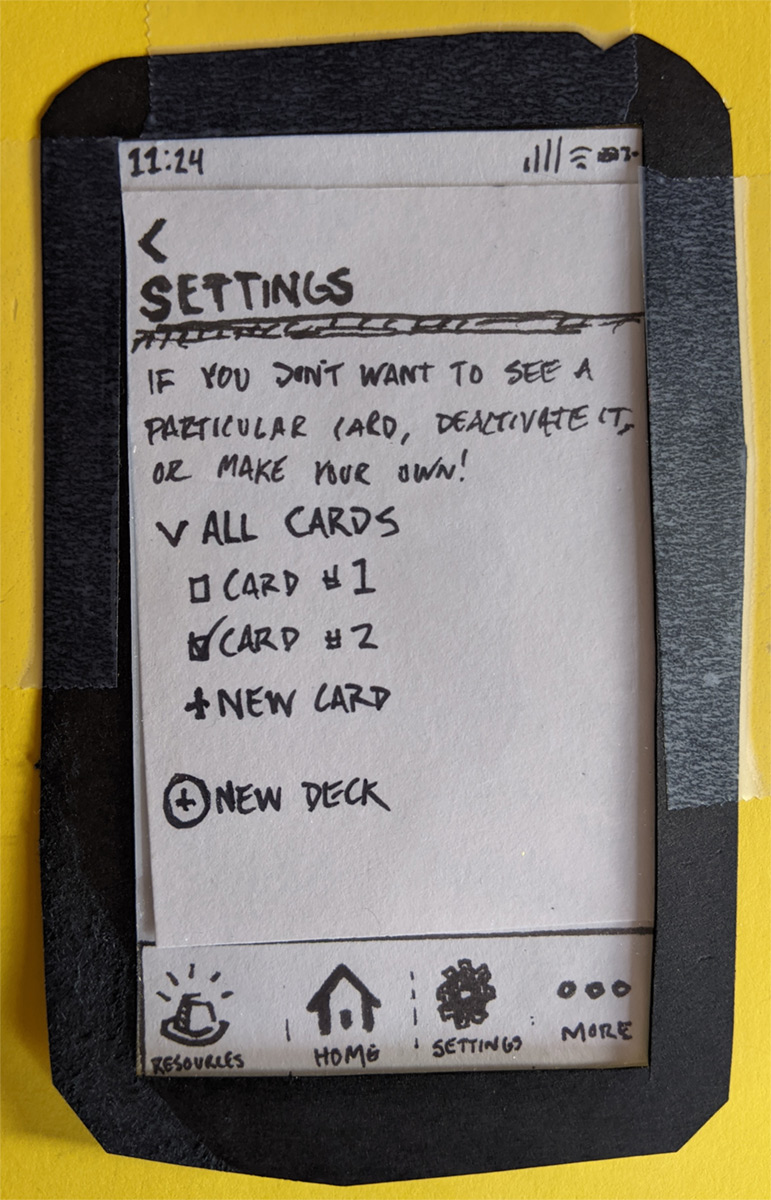 11:24
<
SETTINGS
IF YOU DON'T WANT TO SEE A
PARTICULAR CARD, DEACTIVATE IT,
OR MAKE YOUR OWN!
ALL CARDS
CARD #1
CARD #2
+ NEW CARD
+ NEW DECK
RESOURCES HOME SETTINGS MORE